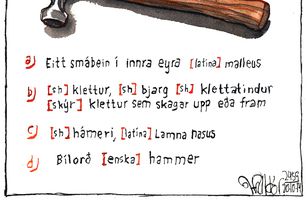 a) Eitt smábein í innra eyra [latína] malleus
b) [sh] klettur, [sh] bjarg [sh] klettatindur
[skýr] klettur sem skagar upp eða fram
c) [sh] hámeri, [latína] Lamna nasus
d) Bílorð [enska] hammer